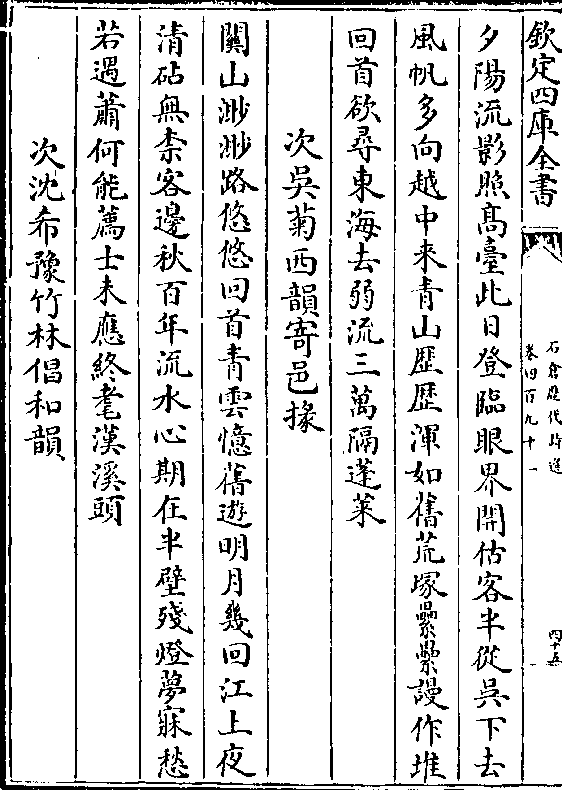 欽定四庫全書
石倉歷代詩選
卷四百九十一
四十五
夕陽流影照髙臺此日登臨眼界開估客半從吳下去
風帆多向越中来青山歴歴渾如舊荒塚纍纍謾作堆
回首欲尋東海去弱流三萬隔蓬萊
次吳菊西韻寄邑掾
關山渺渺路悠悠回首青雲憶舊遊明月幾回江上夜
清砧無柰客邊秋百年流水心期在半壁殘燈夢寐愁
若遇蕭何能薦士未應終耄漢溪頭
次沈希豫竹林倡和韻